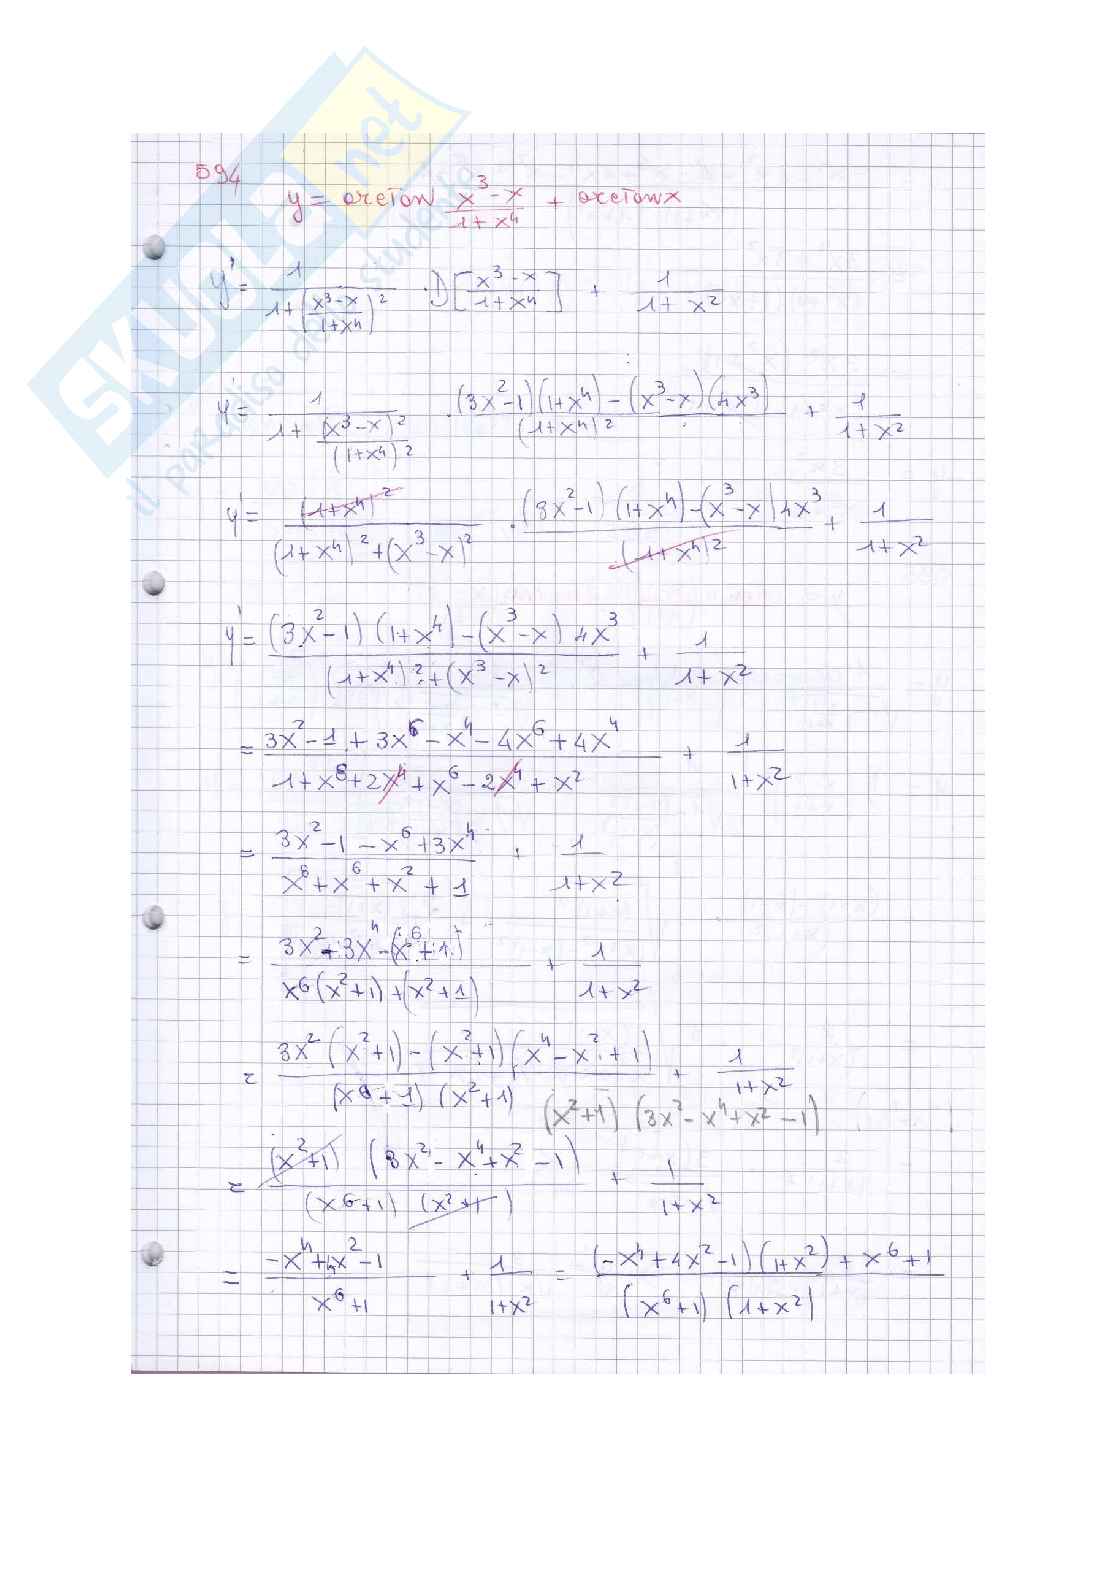 594
y = arctan (x³-x)/(1+x⁴) + arctan x
y' = 1/(1+((x³-x)/(1+x⁴))²) · D[(x³-x)/(1+x⁴)] + 1/(1+x²)
y' = 1/(1+(x³-x)²/(1+x⁴)²) · ((3x²-1)(1+x⁴)-(x³-x)(4x³))/(1+x⁴)² + 1/(1+x²)
y' = (1+x⁴)²/((1+x⁴)²+(x³-x)²) · ((3x²-1)(1+x⁴)-(x³-x)4x³)/(1+x⁴)² + 1/(1+x²)
y' = ((3x²-1)(1+x⁴)-(x³-x)4x³)/((1+x⁴)²+(x³-x)²) + 1/(1+x²)
= (3x²-1+3x⁶-x⁴-4x⁶+4x⁴)/(1+x⁸+2x⁴+x⁶-2x⁴+x²) + 1/(1+x²)
= (3x²-1-x⁶+3x⁴)/(x⁸+x⁶+x²+1) + 1/(1+x²)
= (3x²+3x⁴-(x⁶+1))/(x⁶(x²+1)+(x²+1)) + 1/(1+x²)
= (3x²(x²+1)-(x²+1)(x⁴-x²+1))/((x⁶+1)(x²+1)) + 1/(1+x²)
(x²+1)(3x²-x⁴+x²-1)
= ((x²+1)(3x²-x⁴+x²-1))/((x⁶+1)(x²+1)) + 1/(1+x²)
= (-x⁴+4x²-1)/(x⁶+1) + 1/(1+x²) = ((-x⁴+4x²-1)(1+x²)+x⁶+1)/((x⁶+1)(1+x²))
SKUOLA.net
il paradiso dello studente